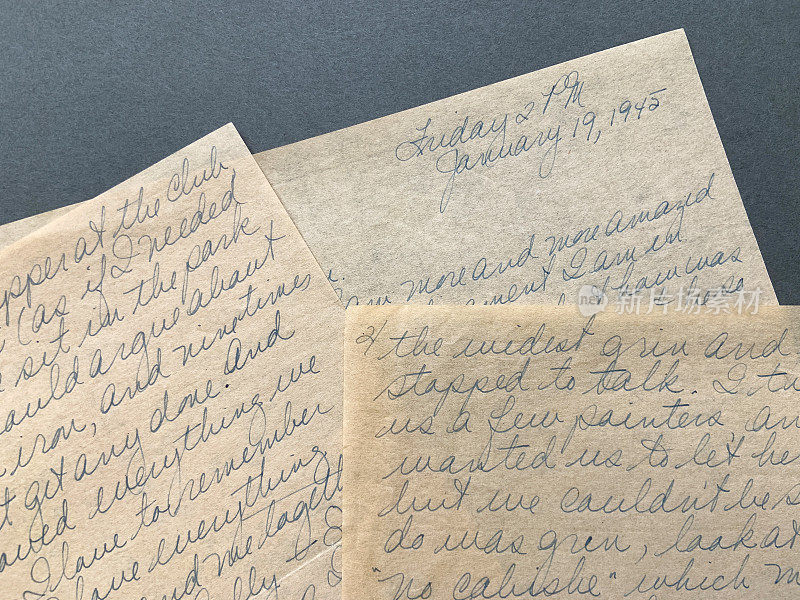 Friday 2 PM
January 19, 1945
am more and more amazed
I am in
was
upper at the club,
(as if I needed
sit in the park
could argue about
iron, and ninetimes
t get any done. And
everything we
I love to remember
love everything
and me togeth
2/ the widest grin and
stopped to talk. I tu
us a few pointers, an
wanted us to let he
but we couldn't be s
do was grin, look at
"no cabishe" which m
iStock
Credit: whose